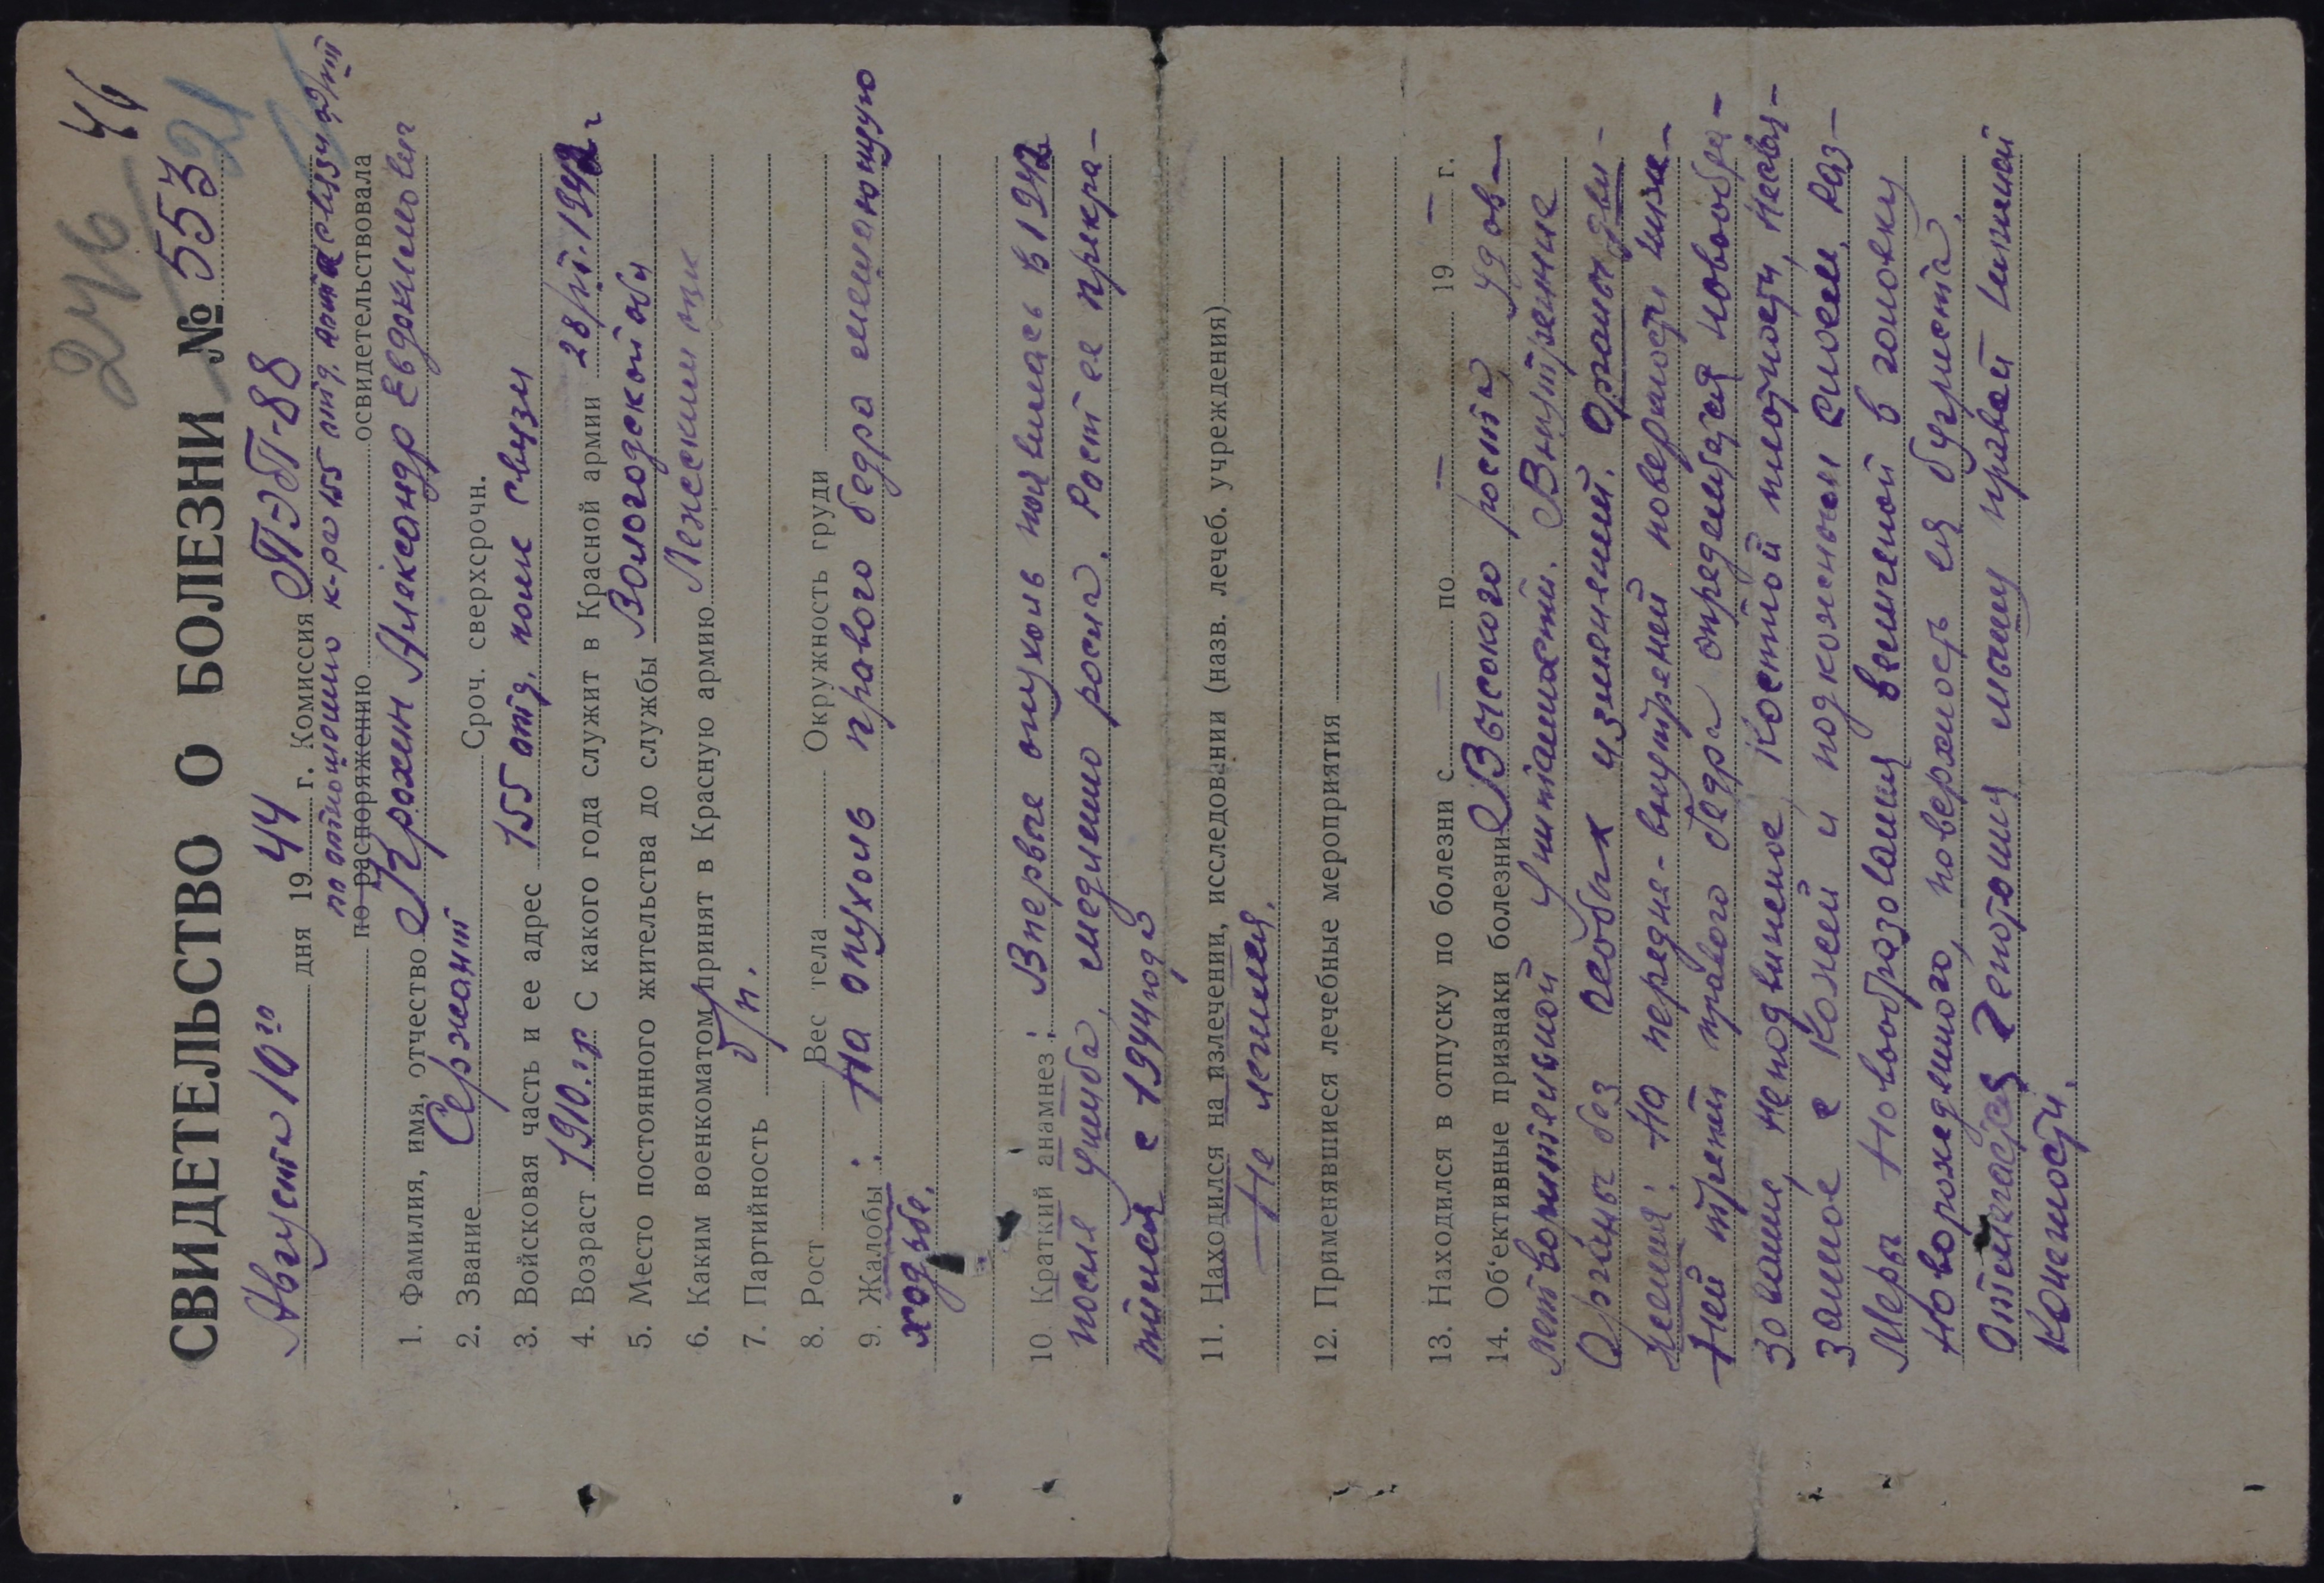 246
46
21
СВИДЕТЕЛЬСТВО О БОЛЕЗНИ № 553
Августа 10го дня 1944 г. Комиссия ПЭП-88
по отношению к-ра 155 отд.
по распоряжению освидетельствовала
1. Фамилия, имя, отчество Крохин Александр Евдокимович
2. Звание Сержант Сроч. сверхсрочн.
3. Войсковая часть и ее адрес 155 отд. полк связи
4. Возраст 1910 г.р. С какого года служит в Красной армии 28/ 1942 г
5. Место постоянного жительства до службы Вологодской обл
6. Каким военкоматом принят в Красную армию Лежским
7. Партийность б/п.
8. Рост Вес тела Окружность груди
9. Жалобы: На опухоль правого бедра мешающую
ходьбе.
10. Краткий анамнез: Впервые опухоль появилась в 1942
после ушиба, медленно росла. Рост ее прекра-
тился с 1944 года
11. Находился на излечении, исследовании (назв. лечеб. учреждения)
Не лечился.
12. Применявшиеся лечебные мероприятия
13. Находился в отпуску по болезни с — по — 19 — г.
14. Об'ективные признаки болезни Высокого роста, удов-
летворительной упитанности. Внутренние
Органы без особых изменений. Органы дви-
жения: На передне-внутренней поверхности ниж-
ней трети правого бедра определяется новообра-
зование, неподвижное, костной плотности, несвя-
занное с кожей и подкожным слоем, раз-
меры Новообразования величиной в головку
новорожденного, поверхность ея бугриста.
Отмечается гипотония мышц правой нижней
конечности.